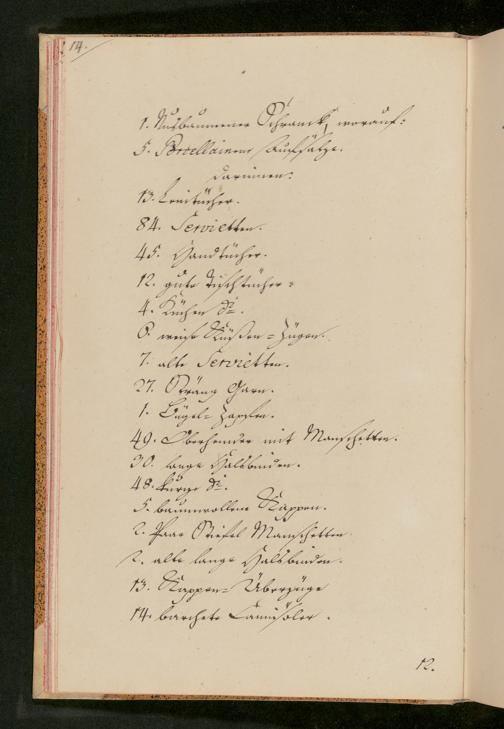 14.
1. Nußbaumener Schranck, worauf:
5. Porcellainene Aufsätze.
darinnen.
13. Leintücher.
84. Servietten.
45. Handtücher.
12. gute Tischtücher
4. Küchen do.
6. weiße Küßen-Zügen.
7. alte Servietten.
27. Sträng Garn.
1. Bügel-
49. Oberhemder mit Manschetten.
30. lange Halsbinden.
48. kurze do.
5. baumwollene Kappen.
2. Paar Stiefel Manschetten
2. alte lange Halsbinden.
13. Kappen-Überzüge
14. barchete Camisöler.
12.